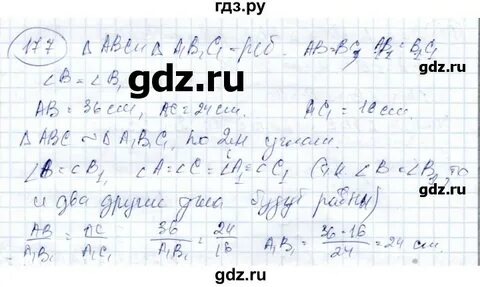 гдз.ру
177 Δ ABC и Δ A₁B₁C₁ - р/б. AB=BC, A₁B₁=B₁C₁
∠B = ∠B₁
AB = 36 см, AC = 24 см. A₁C₁ = 16 см.
Δ ABC ~ Δ A₁B₁C₁ по 2м углам.
∠B = ∠B₁, ∠A = ∠C = ∠A₁ = ∠C₁ (т.к ∠B = ∠B₁, то
и два другие угла будут равны)
AB/A₁B₁ = AC/A₁C₁ 36/A₁B₁ = 24/16 A₁B₁ = 36·16/24 = 24 см.
gdz.ru
gdz.ru
gdz.ru
gdz.ru